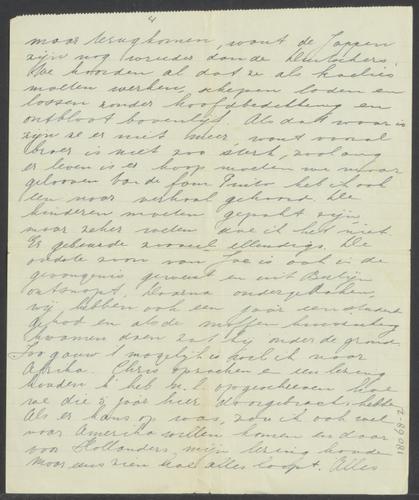 4
maar terugkomen, want de Jappen
zijn nog wreeder dan de Duitschers.
We hoorden al dat ze als koelies
moeten werken, schepen laden en
lossen zonder hoofdbedekking en
ontbloot bovenlijf. Als dat waar is
zijn ze er niet meer, want vooral
broer is niet zoo sterk, zoolang
er leven is er hoop moeten we maar
gelooven. Van de fam Pinto heb ik ook
een naar verhaal gehoord. De
kinderen moeten gepakt zijn,
maar zeker weten doe ik het niet.
Er gebeurde zooveel ellendigs. De
oudste zoon van is ook in de
gevangenis geweest en uit Berlijn
ontsnapt, daarna ondergedoken,
wij hebben ook een jaar een student
gehad en als de moffen huiszoeking
kwamen doen zat hij onder de grond.
Zoo gauw 't mogelijk is hoop ik naar
Afrika. Chris oprachen e een lezing
houden i/h N.I. opgeschreven hoe
we die 5 jaar hier doorgebracht hebben.
Als er kans op was, zou ik ook wel
naar Amerika willen komen en daar
voor Hollanders mijn lezing houden
Maar eens zien hoe alles loopt. Alles
18069-2